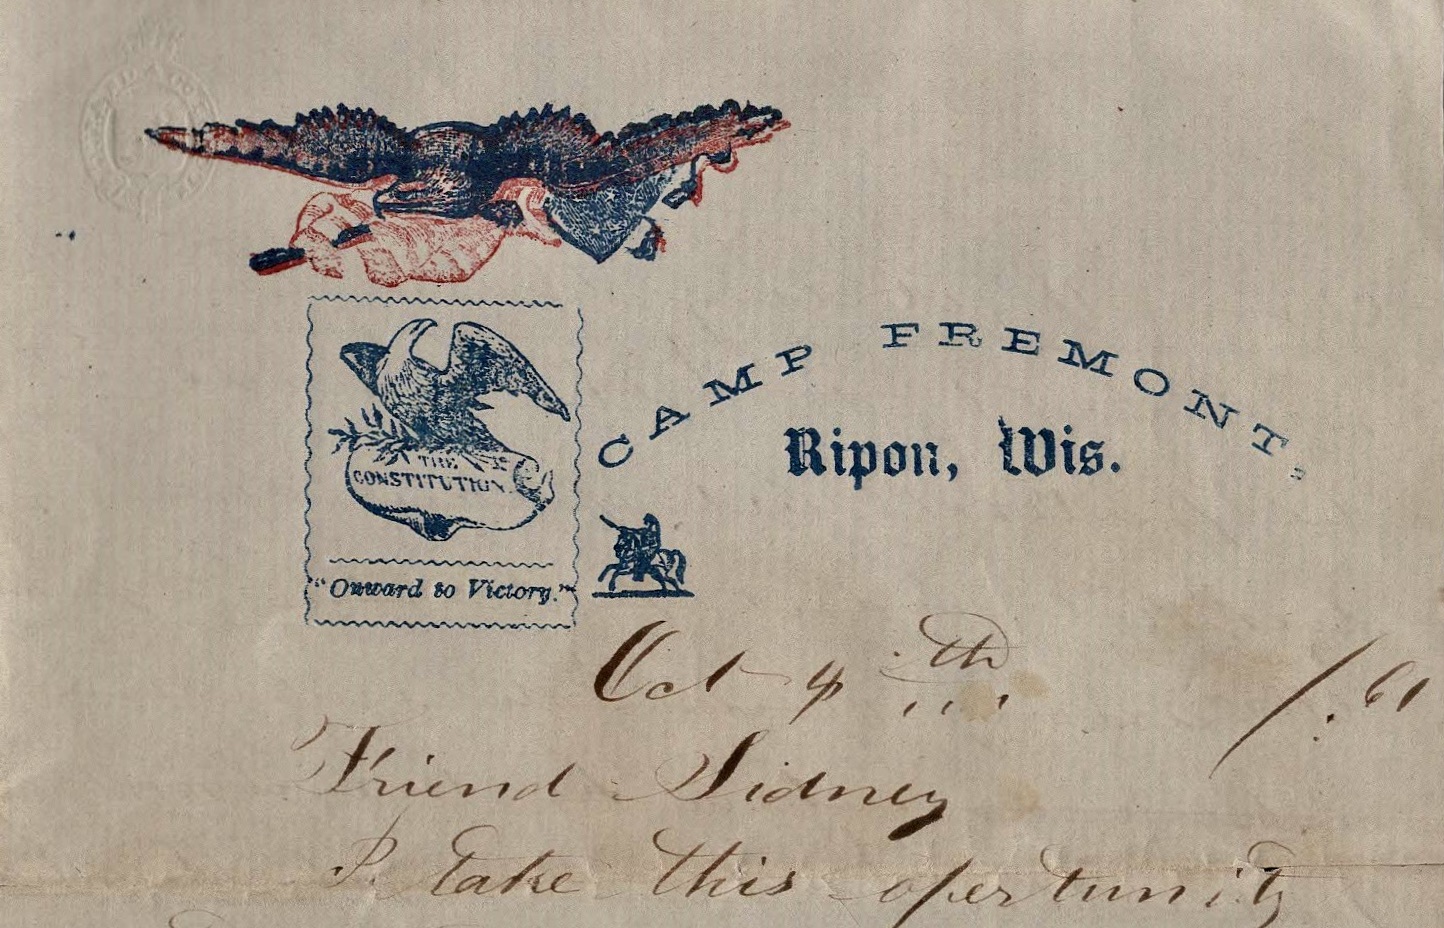 CAMP FREMONT,
Ripon, Wis.
THE
CONSTITUTION.
"Onward to Victory."
Oct 4th /.61
Friend Sidney
I take this opertunity